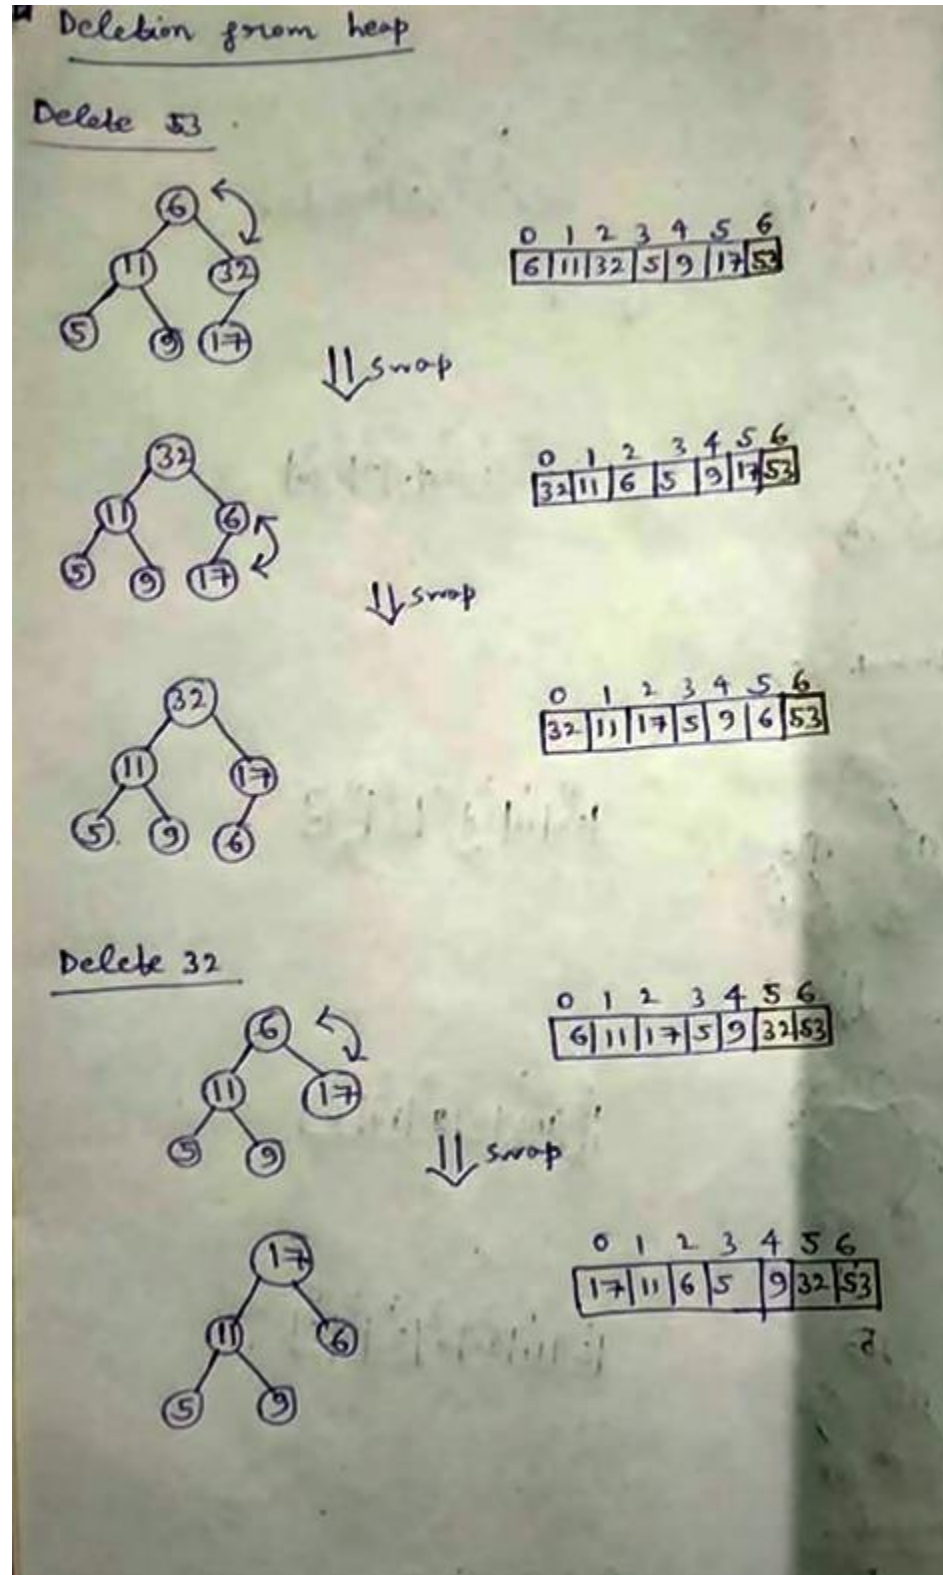 Deletion from heap
Delete 53
6
11 32
5 9 17
0 1 2 3 4 5 6
6 11 32 5 9 17 53
swap
32
11 6
5 9 17
0 1 2 3 4 5 6
32 11 6 5 9 17 53
swap
32
11 17
5 9 6
0 1 2 3 4 5 6
32 11 17 5 9 6 53
Delete 32
6
11 17
5 9
0 1 2 3 4 5 6
6 11 17 5 9 32 53
swap
17
11 6
5 9
0 1 2 3 4 5 6
17 11 6 5 9 32 53